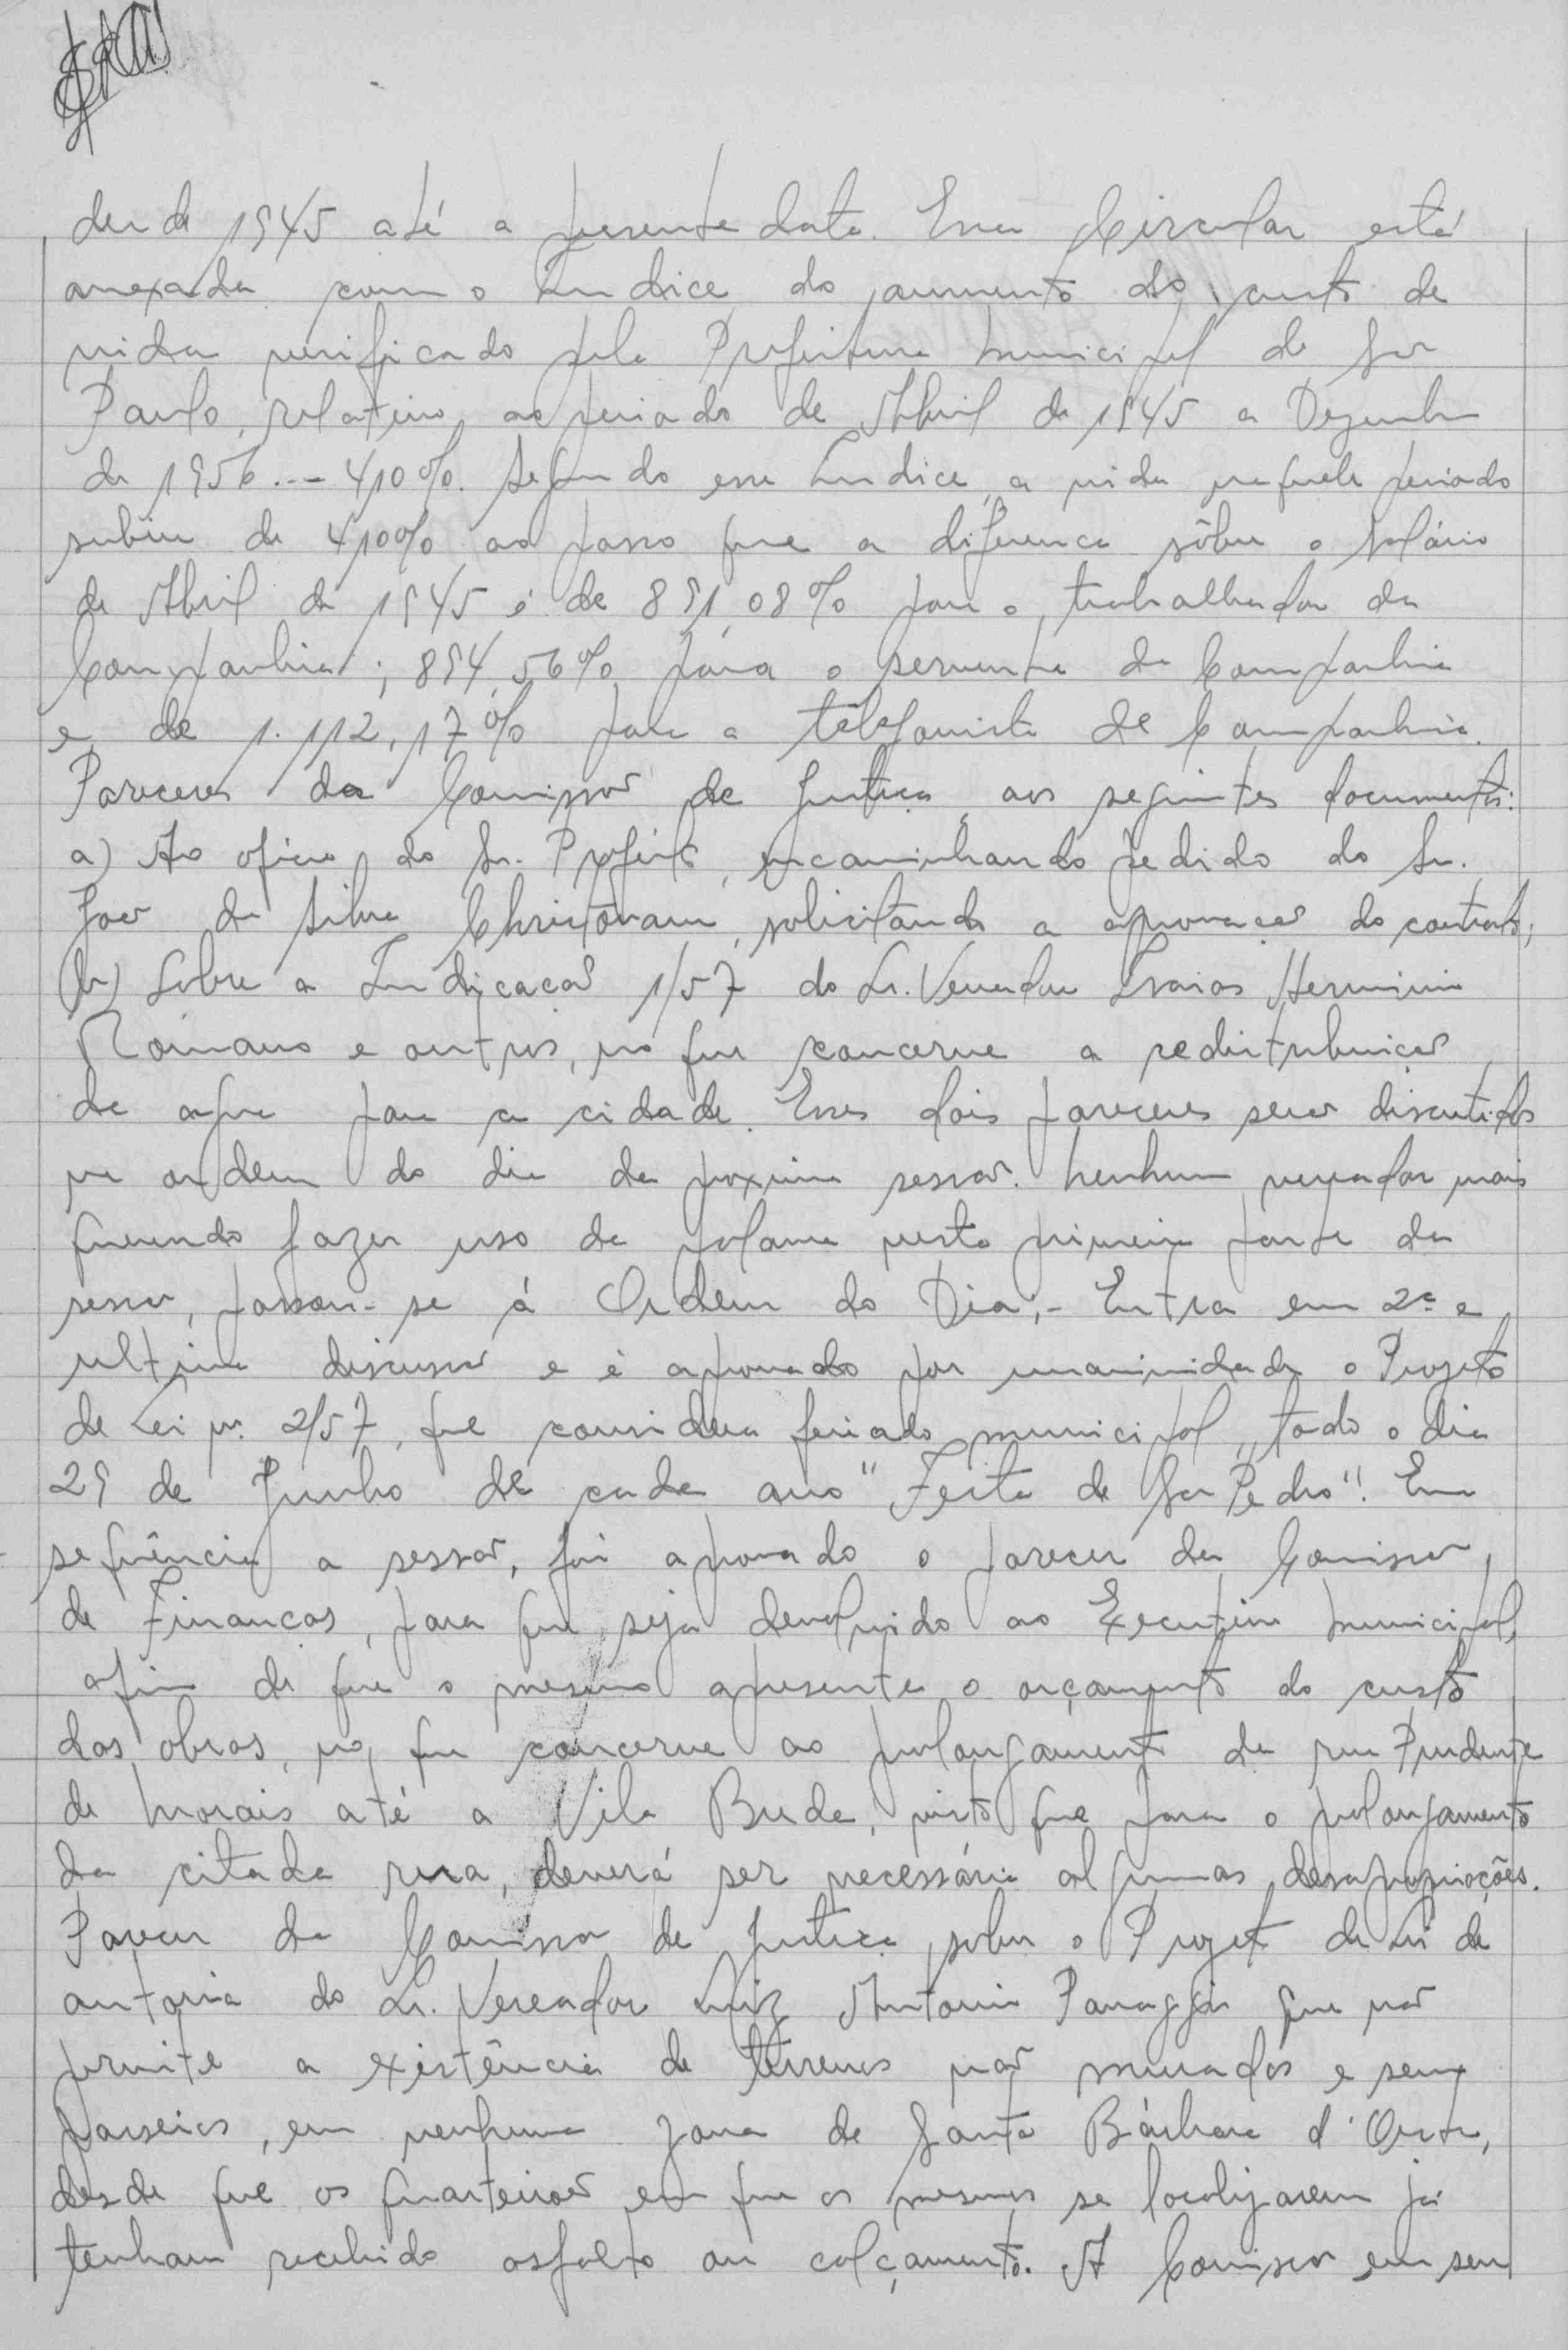 desde 1945 até a presente data. Essa Circular está
anexada com o Indice do aumento do custo de
vida verificado pela Prefeitura Municipal de São
Paulo, relativo ao periodo de Abril de 1945 a Dezembro
de 1956 ... 410%. Segundo esse Indice, a vida naquele periodo
subiu de 410% ao passo que a diferença sôbre o salário
de Abril de 1945 é de 891,08% para o trabalhador da
Companhia; 894,56% para o servente da Companhia
e de 1.112,17% para a telefonista da Companhia.
Pareceres da Comissão de Justiça, aos seguintes documentos:
a) Ao oficio do Sr. Prefeito, encaminhando pedido do Sr.
João da Silva Christovam, solicitando a aprovação do contrato;
(b) Sobre a Indicação 1/57 do Sr. Vereador Isaias Herminio
Romano e outros, no que concerne a redistribuição
de agua para a cidade. Esses dois pareceres serão discutidos
na ordem do dia da proxima sessão. Nenhum vereador mais
querendo fazer uso da palavra nesta primeira parte da
sessão, passou-se á Ordem do Dia; - Entra em 2ª e
ultima discussão e é aprovado por unanimidade o Projeto
de Lei nº. 2/57, que considera feriado municipal, todo o dia
29 de Junho de cada ano "Festa de São Pedro". Em
sequência a sessão, foi aprovado o parecer da Comissão
de Financas, para que seja devolvido ao Executivo Municipal,
afim de que o mesmo apresente o orçamento do custo
das obras, no que concerne ao prolongamento da rua Prudente
de Morais até a Vila Buda, visto que para o prolongamento
da citada rua, deverá ser necessária algumas desapropriações.
Parecer da Comissão de Justiça, sobre o Projeto de Lei de
autoria do Sr. Vereador Luiz Antonio Panaggio que não
permite a existência de terrenos não murados e sem
passeios, em nenhuma zona de Santa Bárbara d'Oeste,
desde que os quarteirões em que os mesmos se localizarem já
tenham recebido asfalto ou calçamento. A Comissão em seu